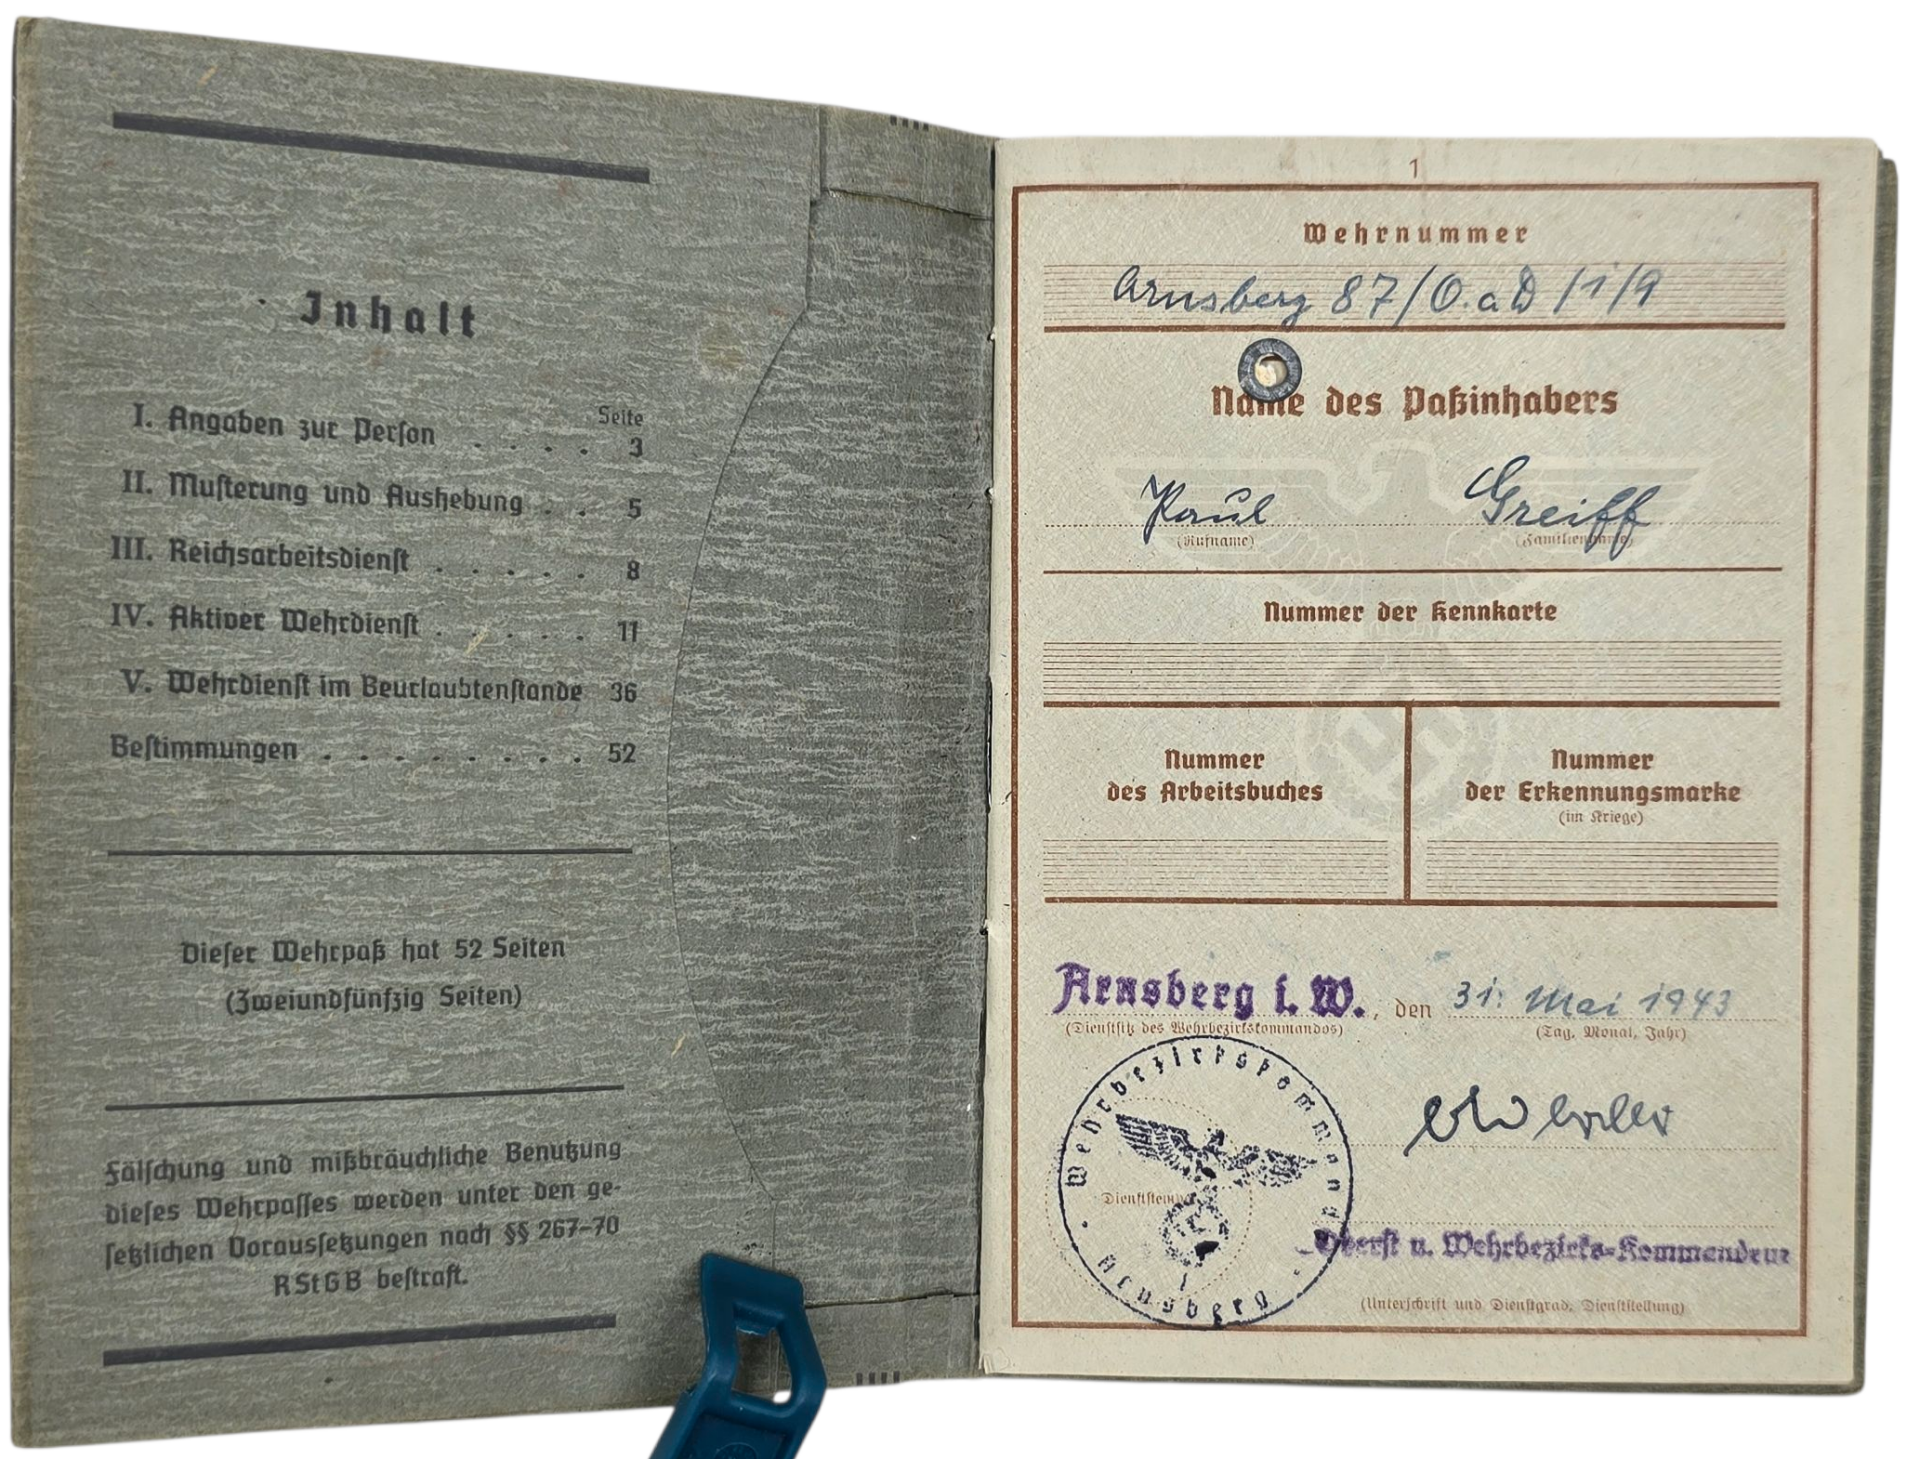 Inhalt
Seite
I. Angaben zur Person . . . . 3
II. Musterung und Aushebung . . 5
III. Reichsarbeitsdienst . . . . . 8
IV. Aktiver Wehrdienst . . . . . 11
V. Wehrdienst im Beurlaubtenstande 36
Bestimmungen . . . . . . . . 52
Dieser Wehrpaß hat 52 Seiten
(Zweiundfünfzig Seiten)
Fälschung und mißbräuchliche Benutzung
dieses Wehrpasses werden unter den ge-
setzlichen Voraussetzungen nach §§ 267–70
RStGB bestraft.
1
Wehrnummer
Arnsberg 87/O.aD/1/9
Name des Paßinhabers
Paul Greiff
(Rufname) (Familienname)
Nummer der Kennkarte
Nummer
des Arbeitsbuches
Nummer
der Erkennungsmarke
(im Kriege)
Arnsberg i. W., den 31. Mai 1943
(Dienstsitz des Wehrbezirkskommandos) (Tag, Monat, Jahr)
Wehrbezirkskommando
Arnsberg
Dienststempel
Oberst u. Wehrbezirks-Kommandeur
(Unterschrift und Dienstgrad, Dienststellung)